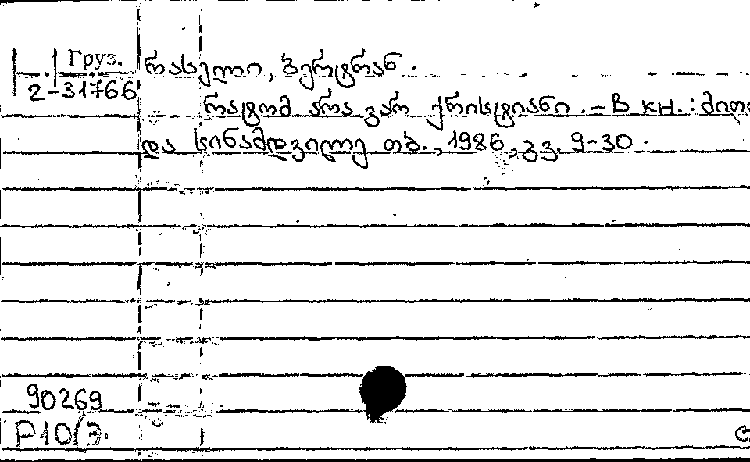 Груз. რასელი, ბერტრან.
2-31766
რატომ არა ვარ ქრისტიანი. – В кн.: მითი
და სინამდვილე თბ., 1986, გვ. 9-30.
90269